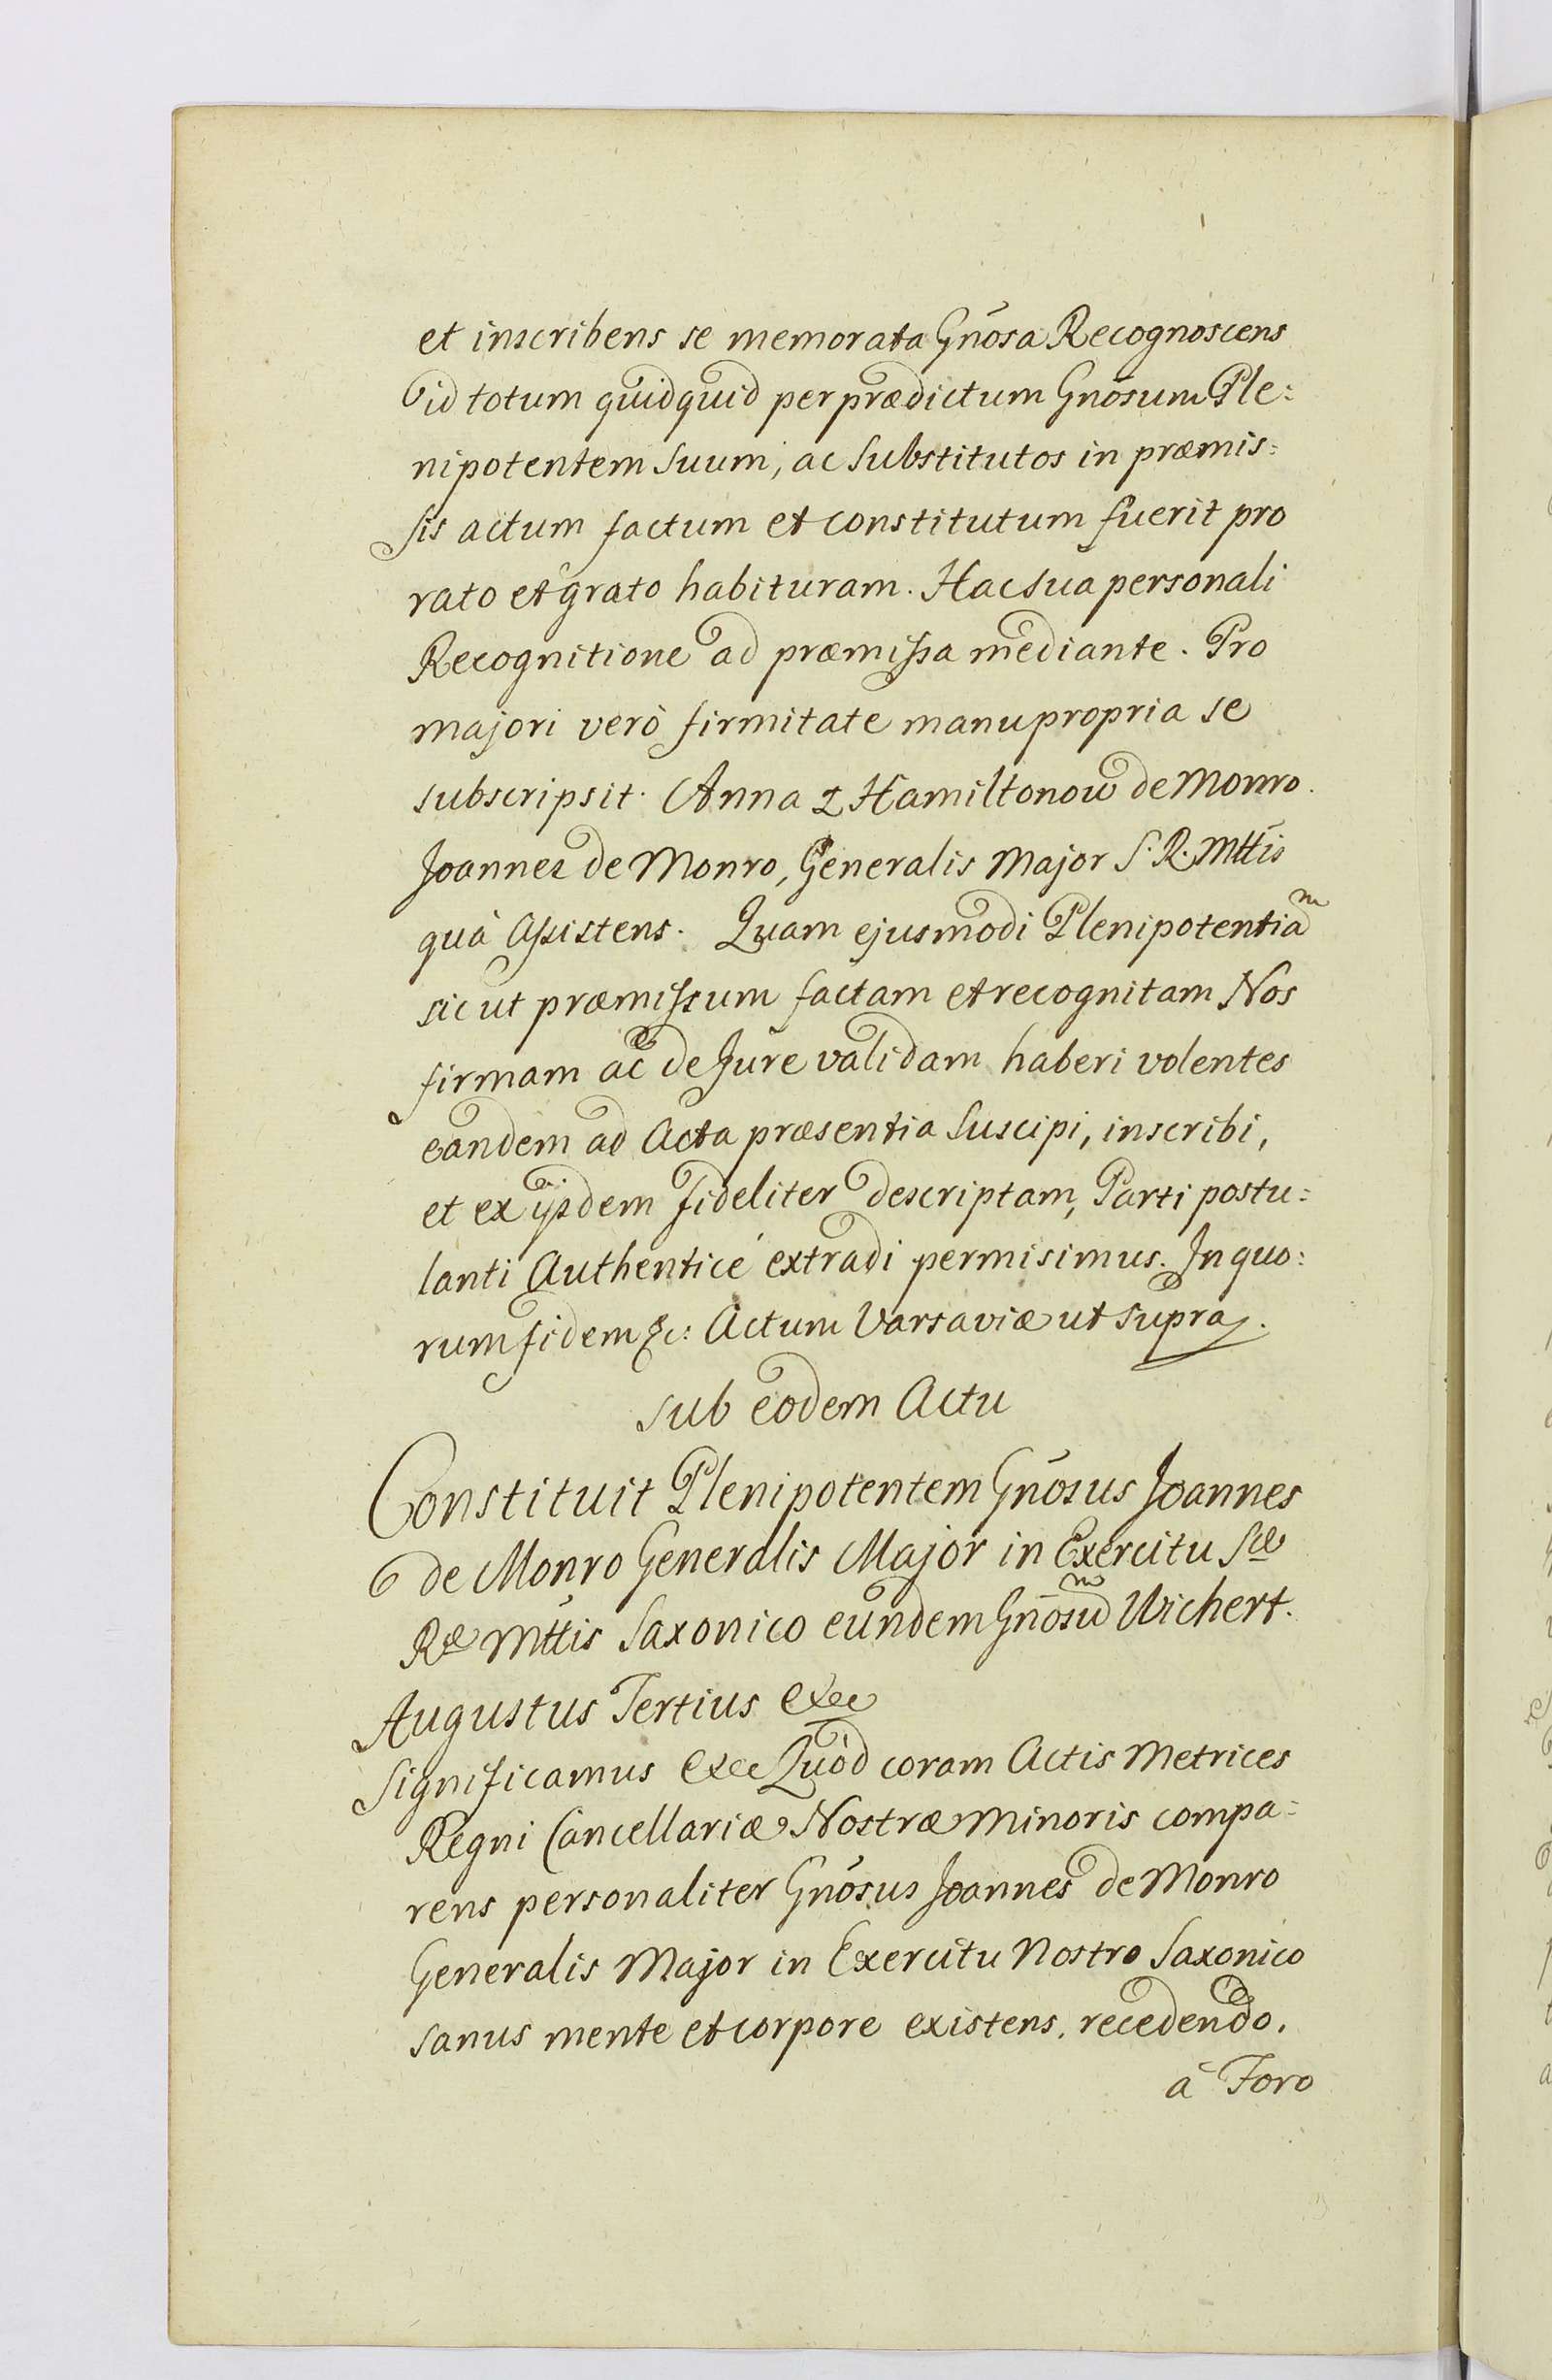 et inscribens se memorata Gnósa Recognoscens
id totum quidquid per prædictum Gnōsum Ple:
nipotentem Suum, ac Substitutos in præmis:
sis actum factum et constitutum fuerit pro
rato et grato habituram. Hac sua personali
Recognitione ad præmissa mediante. Pro
majori verò firmitate manu propria se
subscripsit. Anna z Hamiltonow de Monro.
Joannes de Monro, Generalis Major S. R. Mttis
quà Assistens. Quam ejusmodi Plenipotentiam
sicut præmissum factam et recognitam Nos
firmam ac de Jure validam haberi volentes
eandem ad Acta præsentia Suscipi, inscribi,
et ex ijsdem fideliter descriptam, Parti postu:
lanti Authenticé extradi permisimus. In quo:
rum fidem &c: Actum Varsaviæ ut supra.
sub eodem Actu
Constituit Plenipotentem Gnósus Joannes
de Monro Generalis Major in Exercitu Sæ
Ræ Mttis Saxonico eundem Gnōsum Wichert.
Augustus Tertius &c
Significamus &c Quòd coram Actis Metrices
Regni Cancellariæ Nostræ Minoris compa:
rens personaliter Gnósus Joannes de Monro
Generalis Major in Exercitu Nostro Saxonico
sanus mente et corpore existens, recedendo,
à Foro